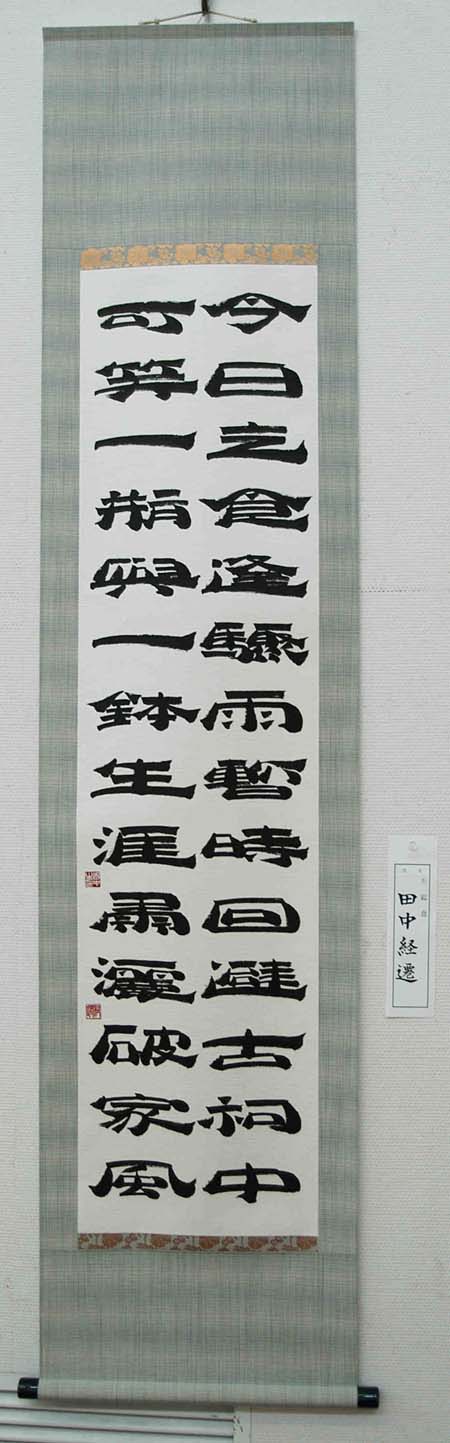 今日乞食逢驟雨暫時回避古祠中
可笑一瓶與一鉢生涯蕭灑破家風
田中経遷